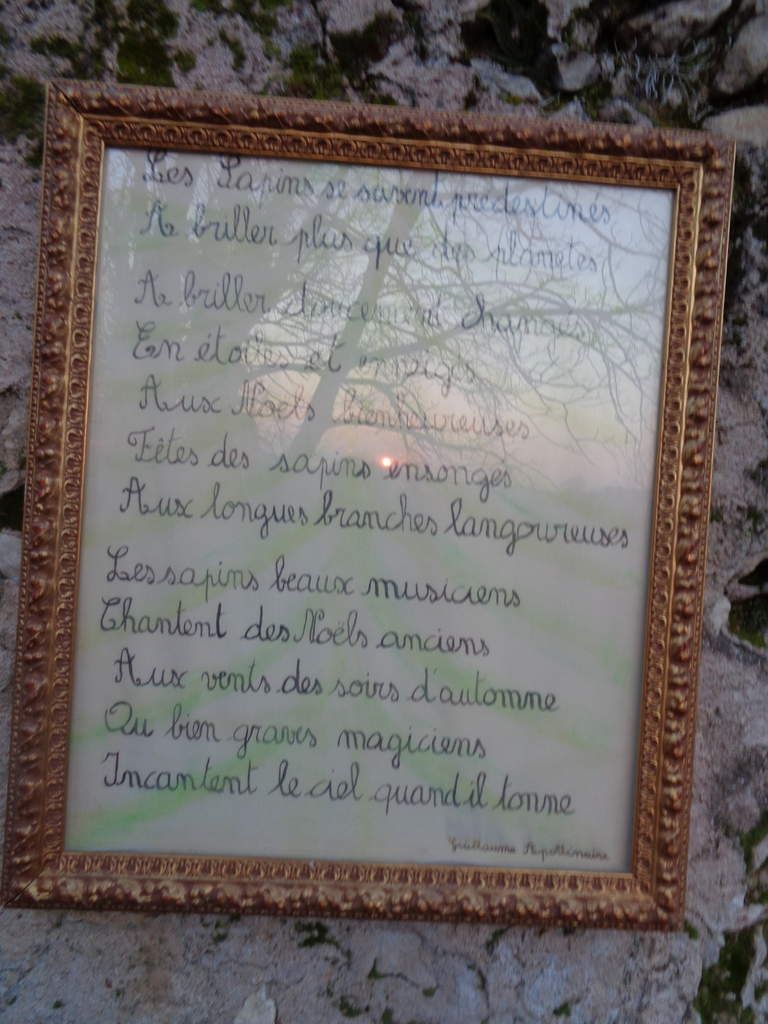 Les Sapins se savent prédestinés
A briller plus que des planètes
A briller doucement changés
En étoiles et enneigés
Aux Noëls bienheureuses
Fêtes des sapins ensongés
Aux longues branches langoureuses
Les sapins beaux musiciens
Chantent des Noëls anciens
Aux vents des soirs d'automne
Ou bien graves magiciens
Incantent le ciel quand il tonne
Guillaume Apollinaire